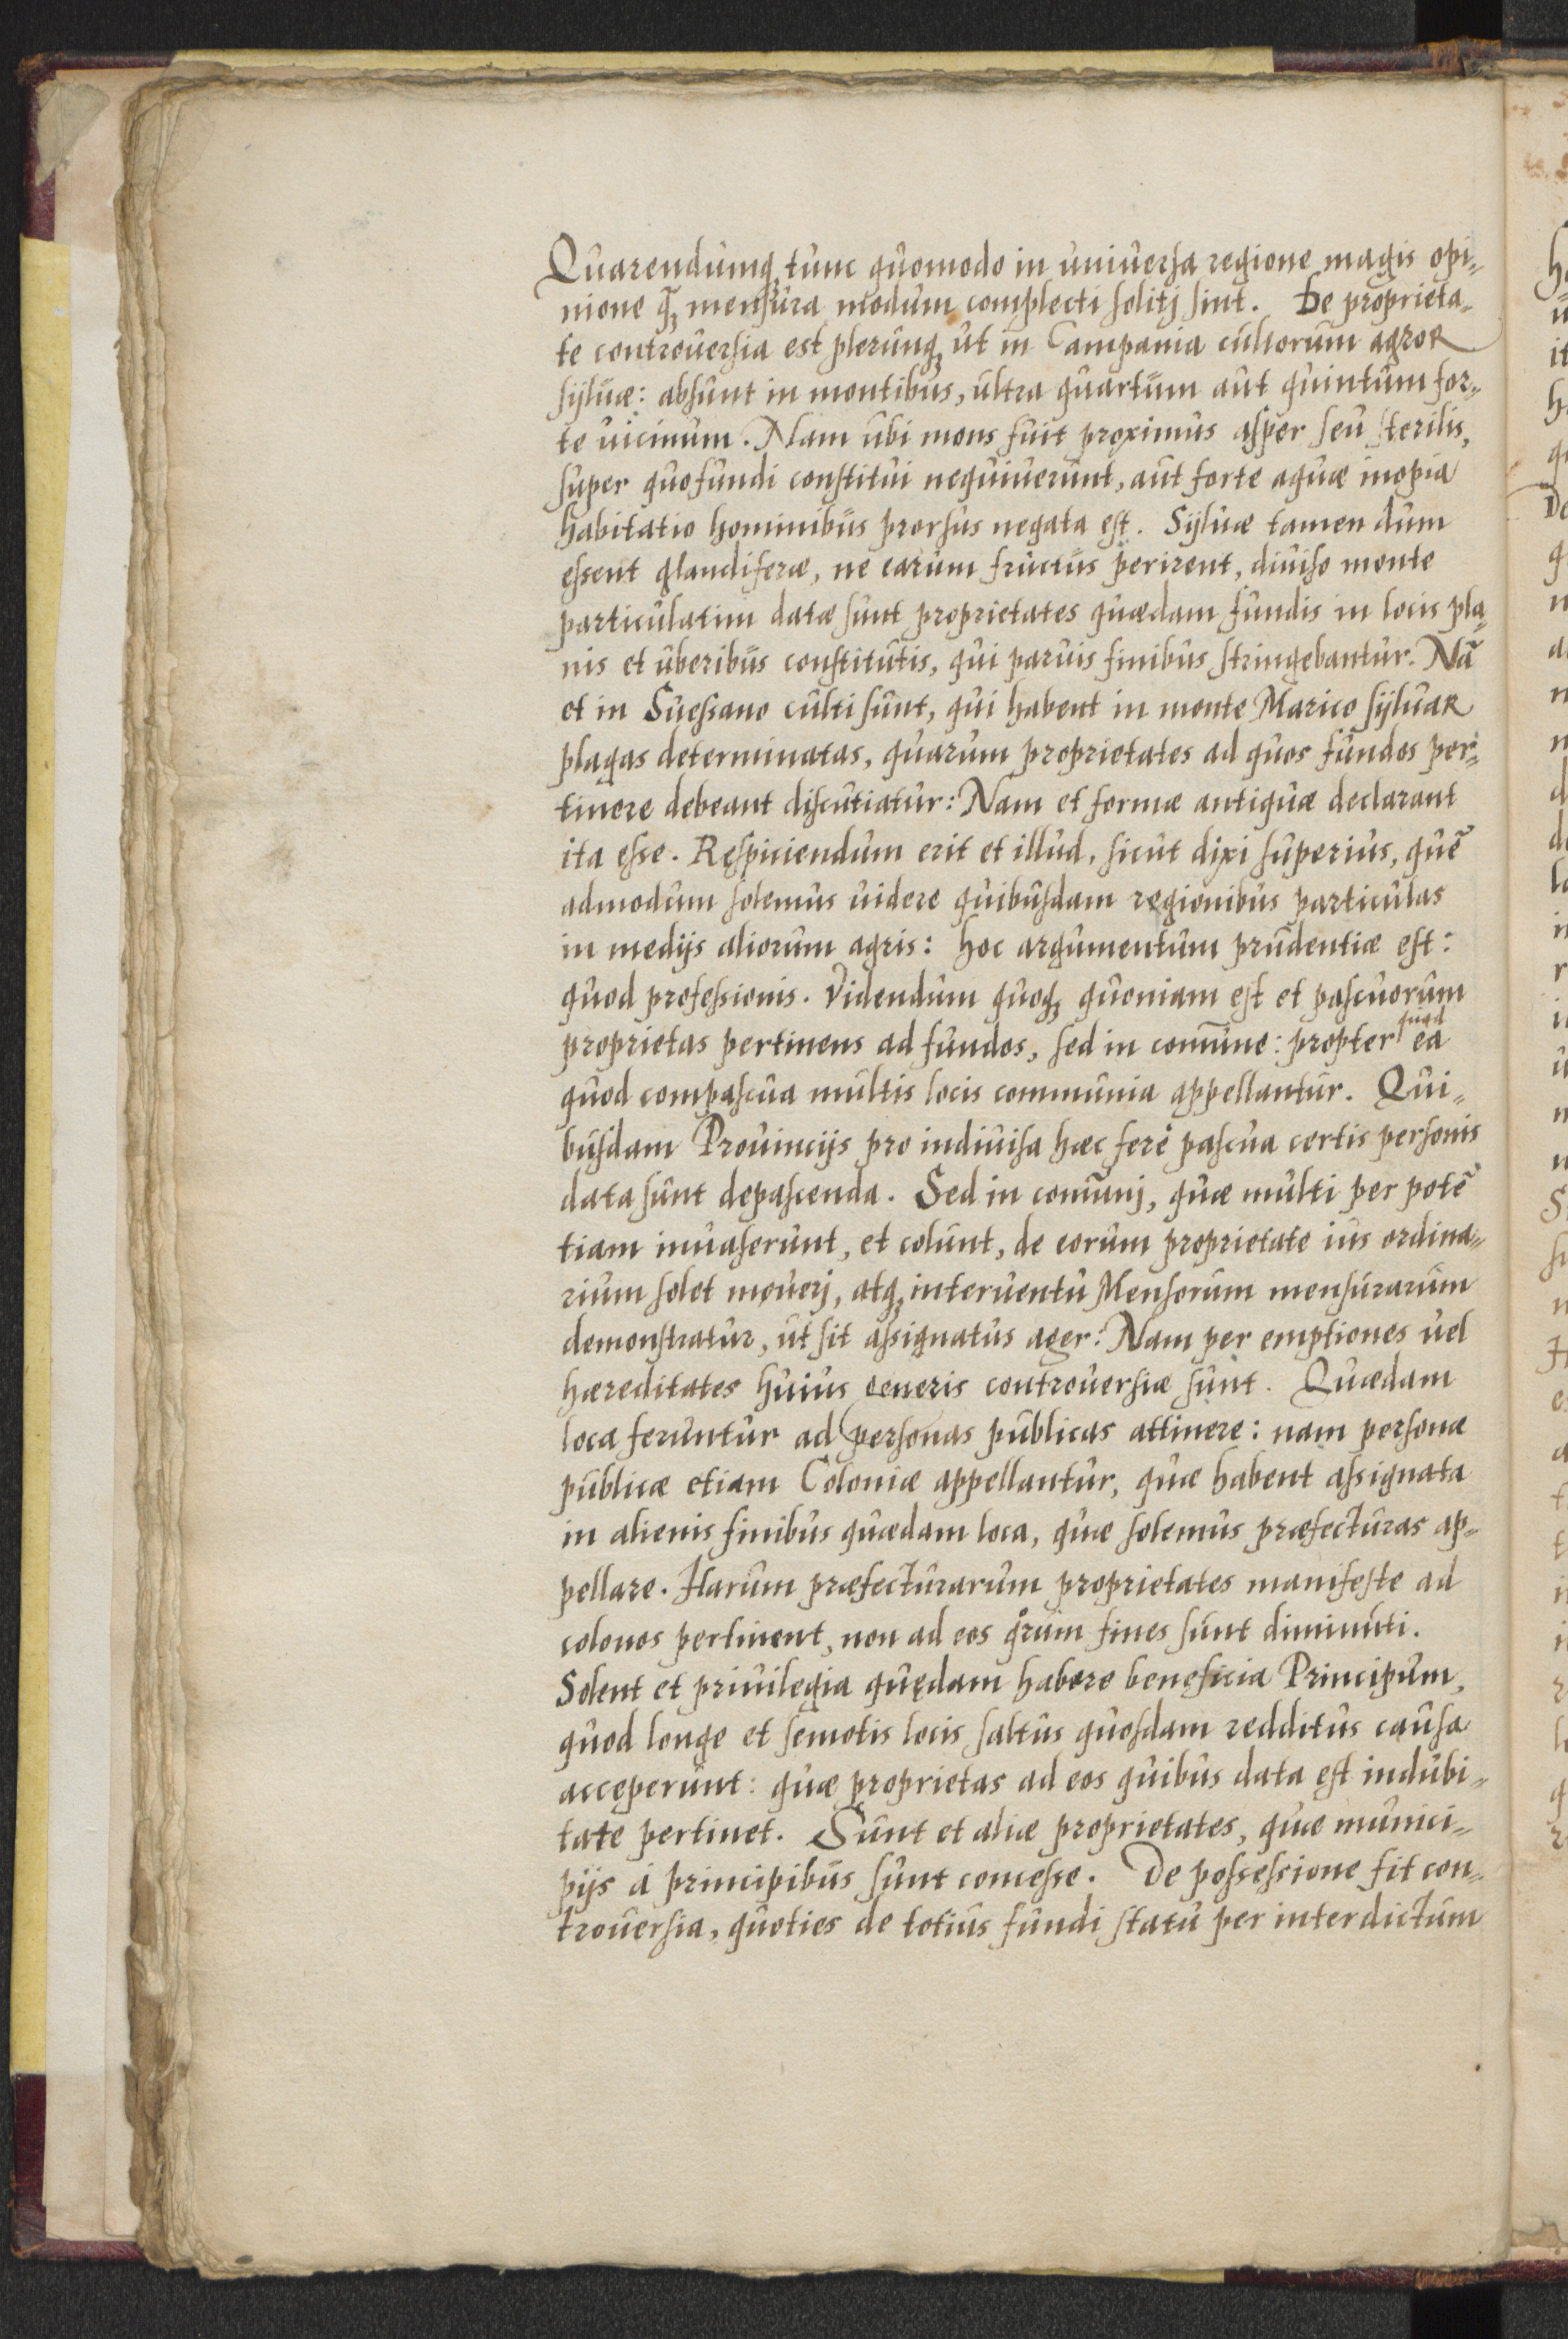 Quarendumq, tunc quomodo in uniuersa regione magis opi-
nione q̃, mensura modum complecti solitj sint. De proprieta-
te controuersia est plerunq, ut in Campania cultorum agroR
syluæ: absunt in montibus, ultra quartum aut quintum for-
te uicinum. Nam ubi mons fuit proximus asper seu sterilis,
super quo fundi constitui nequiuerunt, aut forte aquæ inopia
habitatio hominibus prorsus negata est. Syluæ tamen dum
essent glandiferæ, ne earum fructus perirent, diuiso monte
particulatim datæ sunt proprietates quædam fundis in locis pla-
nis et uberibus constitutis, qui paruis finibus stringebantur. Nã
et in Suessano culti sunt, qui habent in monte Marico syluaR
plagas determinatas, quarum proprietates ad quos fundos per-
tinere debeant discutiatur: Nam et formæ antiquæ declarant
ita esse. Respiciendum erit et illud, sicut dixi superius, quẽ
admodum solemus uidere quibusdam regionibus particulas
in medijs aliorum agris: hoc argumentum prudentiæ est:
quod professionis. Videndum quoq, quoniam est et pascuorum
proprietas pertinens ad fundos, sed in comũne: propter quod ea
quod compascua multis locis communia appellantur. Qui-
busdam Prouincijs pro indiuisa hæc ferè pascua certis personis
data sunt depascenda. Sed in comũnj, quæ multi per potẽ
tiam inuaserunt, et colunt, de eorum proprietate ius ordina-
rium solet mouerj, atq, interuentu Mensorum mensurarum
demonstratur, ut sit assignatus ager: Nam per emptiones uel
hæreditates huius generis controuersiæ sunt. Quædam
loca feruntur ad personas publicas attinere: nam personæ
publicæ etiam Coloniæ appellantur, quæ habent assignata
in alienis finibus quædam loca, quæ solemus præfecturas ap-
pellare. Harum præfecturarum proprietates manifeste ad
colonos pertinent, non ad eos qͦrum fines sunt diminuti.
Solent et priuilegia quędam habere beneficia Principum,
quod longe et semotis locis saltus quosdam redditus causa
acceperunt: quæ proprietas ad eos quibus data est indubi-
tate pertinet. Sunt et aliæ proprietates, quæ munici-
pijs á principibus sunt concesse. De possessione fit con-
trouersia, quoties de totius fundi statu per interdictum